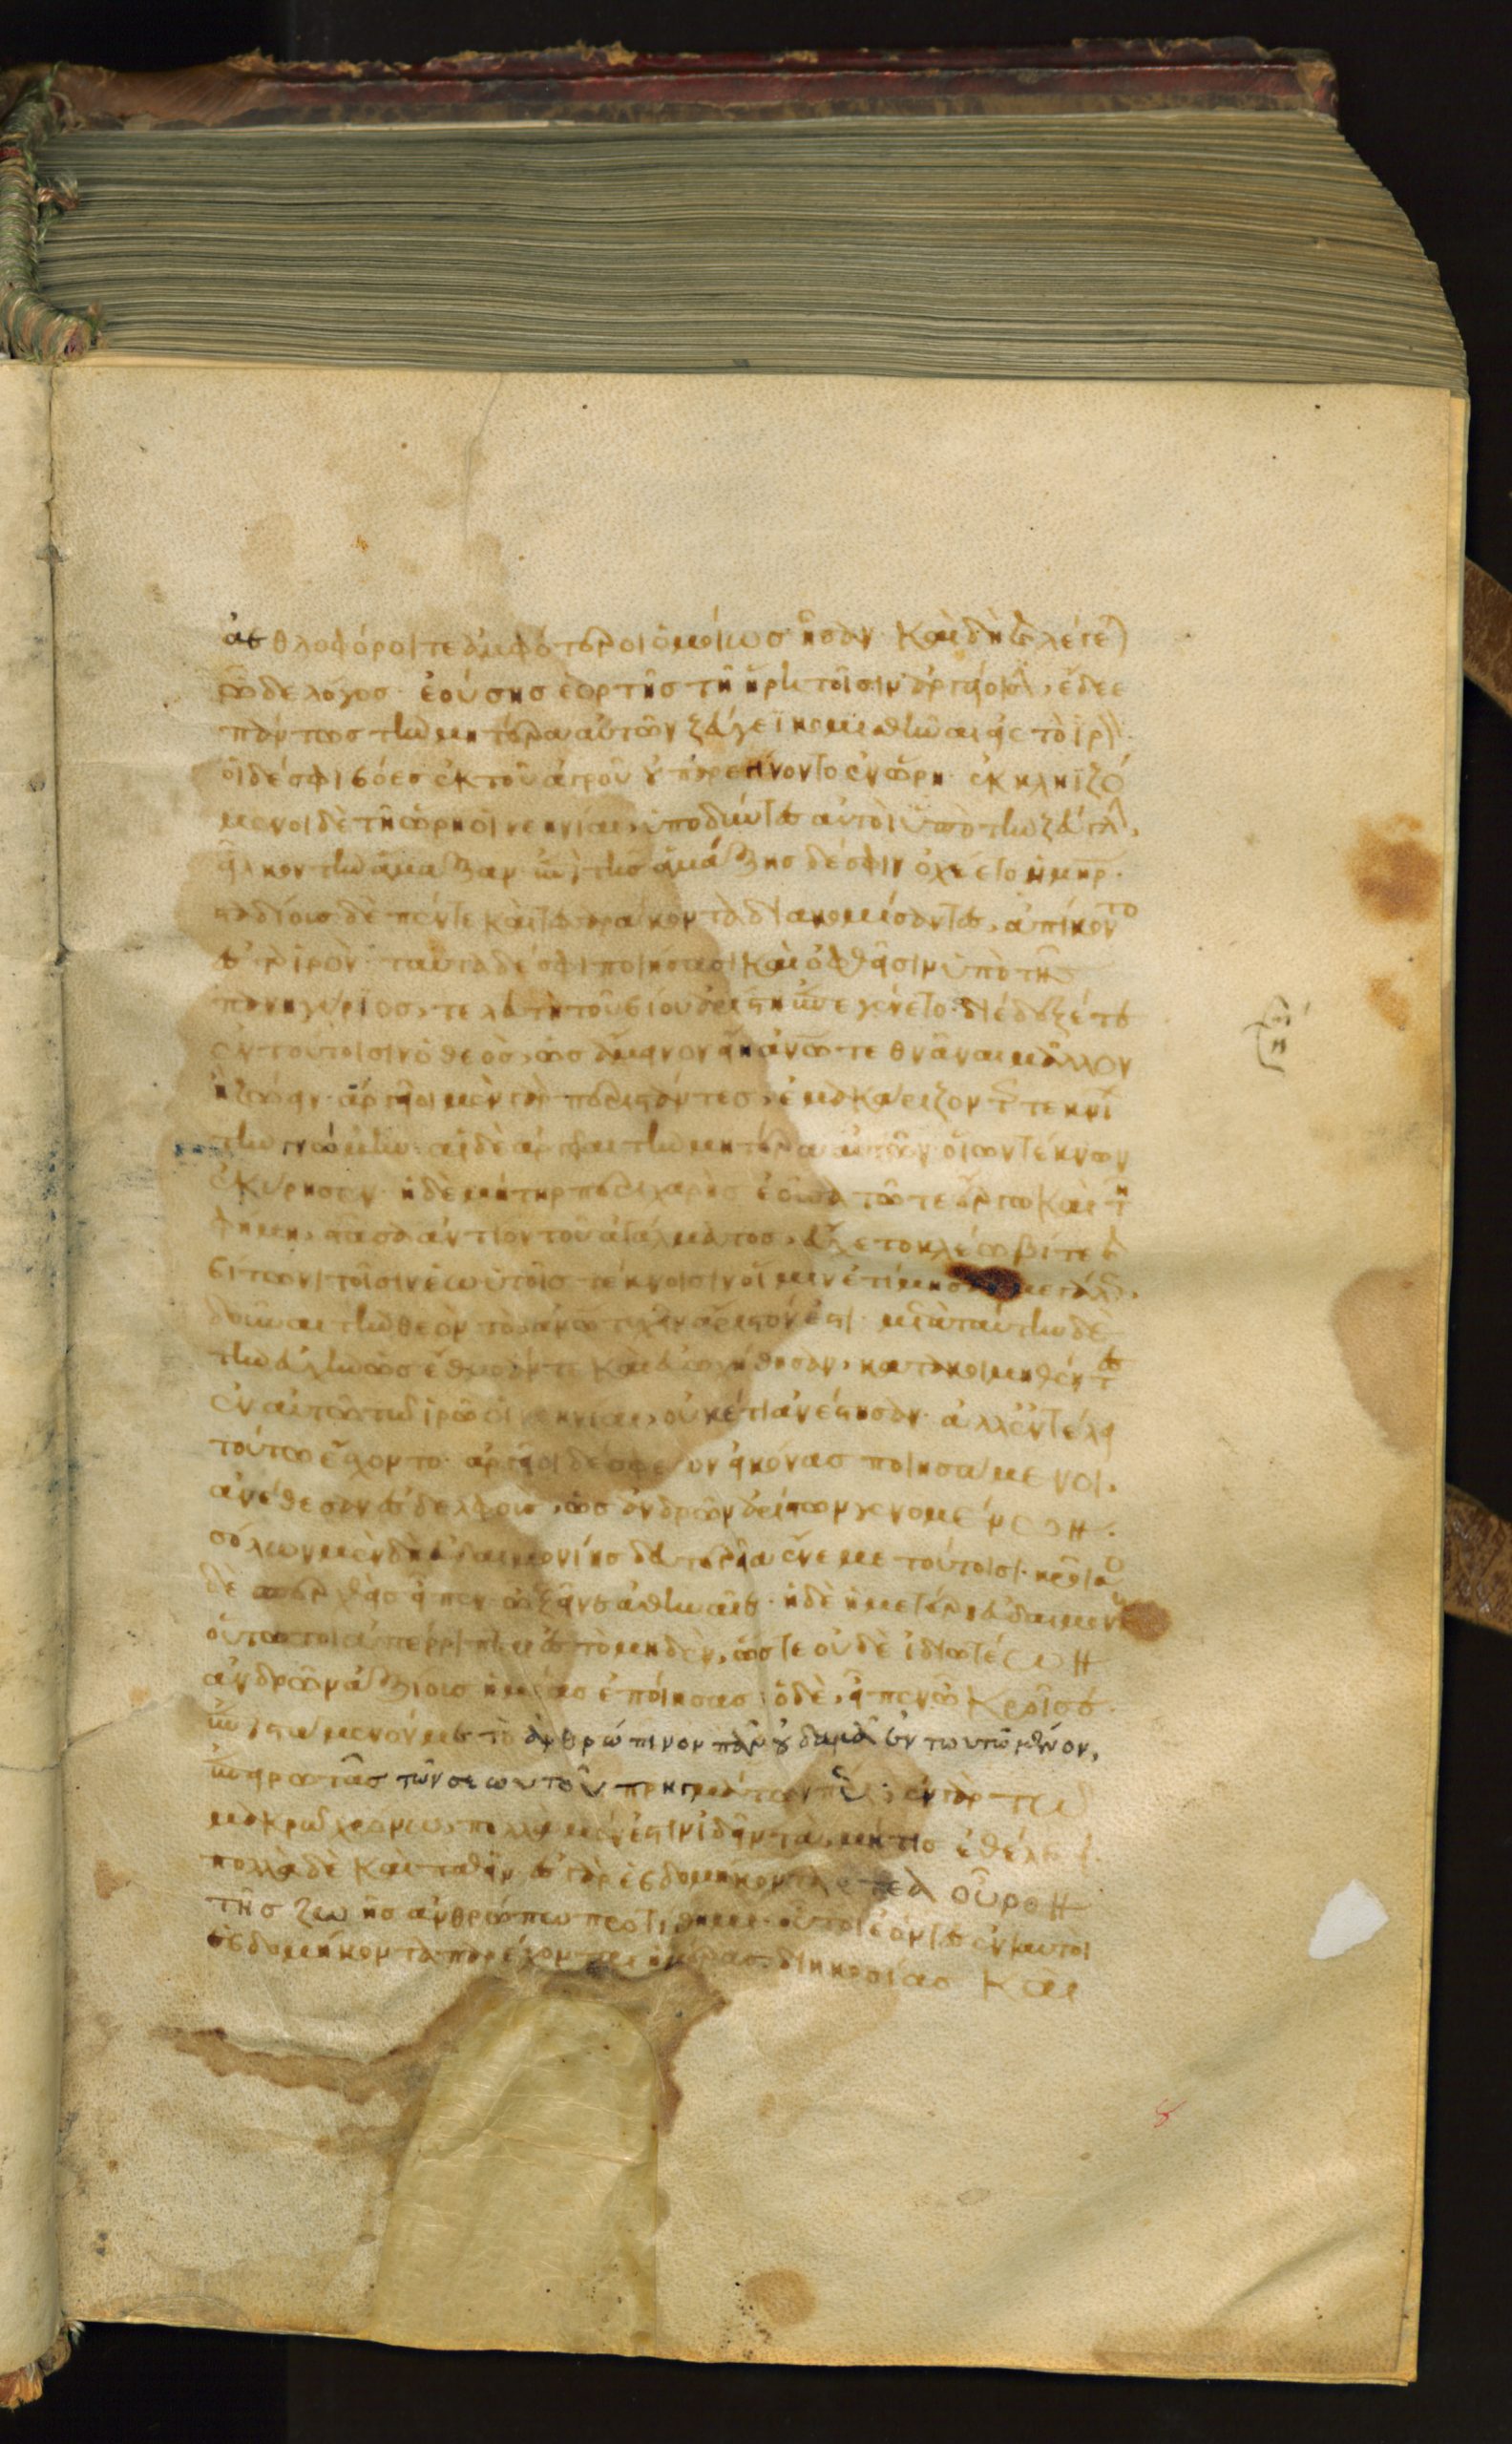 ἀεθλοφόροι τε ἀμφότεροι ὁμοίως ἦσαν· καὶ δὴ καὶ λέγεται
ὧδε λόγος· ἐούσης ἑορτῆς τῆ ἥρηι τοῖσιν ἀργείοισι, ἔδεε
πάντως τὴν μητέρα αὐτῶν ζεύγεϊ κομισθῆναι ἐς τὸ ἱρόν·
οἱ δέ σφι βόες ἐκ τοῦ ἀγροῦ οὐ παρεγίνοντο ἐν ὥρη· ἐκκληϊό
μενοι δὲ τῆ ὥρη οἱ νεηνίαι, ὑποδύντες αὐτοὶ ὑπὸ τὴν ζεύγλην,
εἷλκον τὴν ἅμαξαν· ἐπὶ τῆς ἁμάξης δέ σφιν ὀχέετο ἡ μήτηρ·
σταδίους δὲ πέντε καὶ τεσσεράκοντα διακομίσαντες, ἀπίκοντο
ἐς τὸ ἱρόν· ταῦτα δέ σφι ποιήσασι καὶ ὀφθεῖσιν ὑπὸ τῆς
πανηγύριος, τελευτὴ τοῦ βίου ἀρίστη ἐπεγένετο· διέδεξέ τε
ἐν τούτοισιν ὁ θεὸς, ὡς ἄμεινον εἴη ἀνθρώπω τεθνάναι μᾶλλον
ἢ ζώειν· ἀργεῖοι μὲν γὰρ περιστάντες, ἐμακάριζον τῶν νεηνιέων
τὴν γνώμην· αἱ δὲ ἀργεῖαι τὴν μητέρα αὐτῶν οἵων τέκνων
ἐκύρησεν· ἡ δὲ μήτηρ περιχαρὴς ἐοῦσα τῶ τε ἔργω καὶ τῆ
φήμη, στᾶσα ἀντίον τοῦ ἀγάλματος, εὔχετο κλεώβι τε καὶ
βίτωνι τοῖσιν ἑωυτῆς τέκνοισιν οἵ μιν ἐτίμησαν μεγάλως,
δοῦναι τὴν θεὸν τὸ ἀνθρώπω τυχεῖν ἄριστόν ἐστι· μετὰ ταύτην δὲ
τὴν εὐχὴν ὡς ἔθυσάν τε καὶ εὐωχήθησαν, κατακοιμηθέντες
ἐν αὐτῶ τῶ ἱρῶ οἱ νεηνίαι, οὐκέτι ἀνέστησαν· ἀλλ' ἐν τέλεϊ
τούτω ἔσχοντο· ἀργεῖοι δέ σφεων εἰκόνας ποιησάμενοι,
ἀνέθεσαν ἐς δελφοὺς, ὡς ἀνδρῶν ἀρίστων γενομένων·
σόλων μὲν δὴ εὐδαιμονίης δευτερεῖα ἔνεμε τούτοισι· κροῖσος
δὲ σπερχθεὶς εἶπεν· ὦ ξεῖνε ἀθηναῖε· ἡ δὲ ἡμετέρη εὐδαιμονίη
οὕτω τοι ἀπέρριπται ἐς τὸ μηδὲν, ὥστε οὐδὲ ἰδιωτέων
ἀνδρῶν ἀξίους ἡμέας ἐποίησας· ὁ δὲ, εἶπεν ὦ κροῖσε·
ἐπιστάμενόν με τὸ ἀνθρώπινον πᾶν
ἐπειρωτᾶς πρηγμάτων πέρι· ἐν γὰρ τῶ
μακρῶ χρόνω, πολλὰ μέν ἐστιν ἰδεῖν τὰ μή τις ἐθέλει·
πολλὰ δὲ καὶ παθεῖν· ἐς γὰρ ἑβδομήκοντα ἔτεα οὖρον
τῆς ζωῆς ἀνθρώπω προτίθημι· οὗτοι ἐόντες ἐνιαυτοὶ
ἑβδομήκοντα παρέχονται ἡμέρας διηκοσίας καὶ